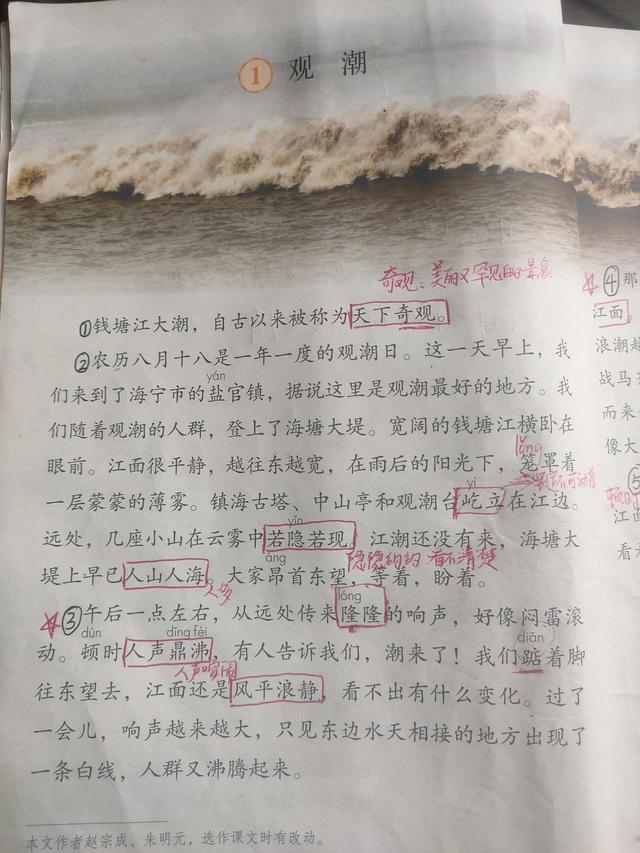 ① 观 潮
奇观：美丽又罕见的景象
①钱塘江大潮，自古以来被称为天下奇观。
②农历八月十八是一年一度的观潮日。这一天早上，我
yán
们来到了海宁市的盐官镇，据说这里是观潮最好的地方。我
们随着观潮的人群，登上了海塘大堤。宽阔的钱塘江横卧在
lǒng
眼前。江面很平静，越往东越宽，在雨后的阳光下，笼罩着
yì
一层蒙蒙的薄雾。镇海古塔、中山亭和观潮台屹立在江边。
yǐn
远处，几座小山在云雾中若隐若现。江潮还没有来，海塘大
áng
隐隐约约 看不清楚
堤上早已人山人海。大家昂首东望，等着，盼着。
人多
lóng
③午后一点左右，从远处传来隆隆的响声，好像闷雷滚
dùn dǐng fèi diǎn
动。顿时人声鼎沸，有人告诉我们，潮来了！我们踮着脚
人声喧闹
往东望去，江面还是风平浪静，看不出有什么变化。过了
一会儿，响声越来越大，只见东边水天相接的地方出现了
一条白线，人群又沸腾起来。
本文作者赵宗成、朱明元，选作课文时有改动。
④那
江面
浪潮越
战马
而来
像大
⑤
江面
看